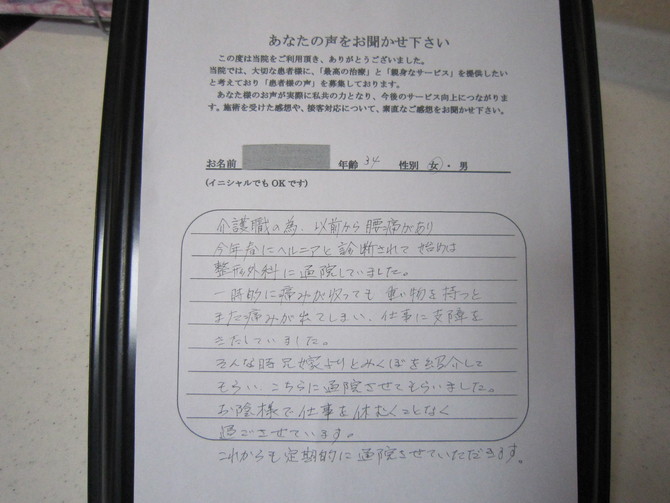 あなたの声をお聞かせ下さい
この度は当院をご利用頂き、ありがとうございました。
当院では、大切な患者様に、「最高の治療」と「親身なサービス」を提供したい
と考えており「患者様の声」を募集しております。
あなた様のお声が実際に私共の力となり、今後のサービス向上につながりま
す。施術を受けた感想や、接客対応について、素直なご感想をお聞かせ下さい。
お名前 年齢 34 性別 女・男
(イニシャルでもOKです)
介護職の為、以前から腰痛があり
今年春にヘルニアと診断されて 始めは
整形外科に通院していました。
一時的に痛みが収っても 重い物を持つと
また痛みが出てしまい、仕事に支障を
きたしていました。
そんな時兄嫁よりとみくぼを紹介して
もらい、こちらに通院させてもらいました。
お陰様で仕事を休むことなく
過ごさせています。
これからも定期的に通院させていただきます。